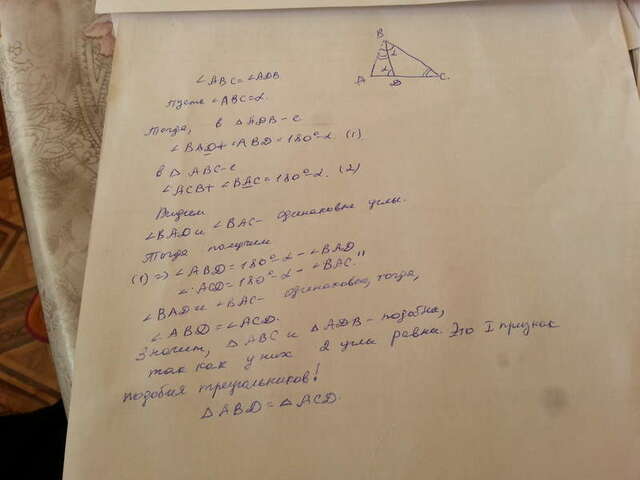 B
2
A
2
D
C
∠ABC = ∠ADB
пусть ∠ABC = 2.
тогда, в △ADB-е
∠BAD + ∠ABD = 180° - 2 (1)
в △ ABC-е
∠ACB + ∠BAC = 180° - 2. (2)
Видим
∠BAD и ∠BAC - одинаковые углы.
тогда получим
(1) => ∠ABD = 180° - 2 - ∠BAD
∠ACD = 180° - 2 - ∠BAC "
∠BAD и ∠BAC - одинаковые, тогда,
∠ABD = ∠ACD.
Значит, △ABC и △ADB - подобны,
так как у них 2 углы равны. Это I признак
подобия треугольников!
△ABD = △ACD.